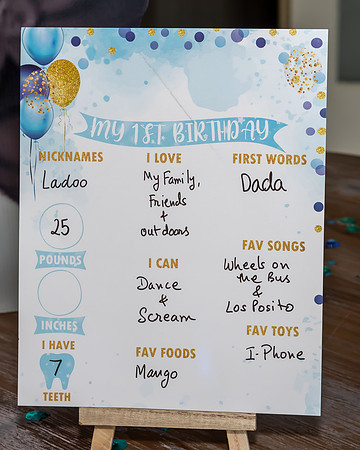 MY 1ST BIRTHDAY
NICKNAMES
Ladoo
25
POUNDS
INCHES
I HAVE
7
TEETH
I LOVE
My Family,
Friends
+
outdoors
I CAN
Dance
&
Scream
FAV FOODS
Mango
FIRST WORDS
Dada
FAV SONGS
Wheels on
the Bus
&
Los Posito
FAV TOYS
I-Phone